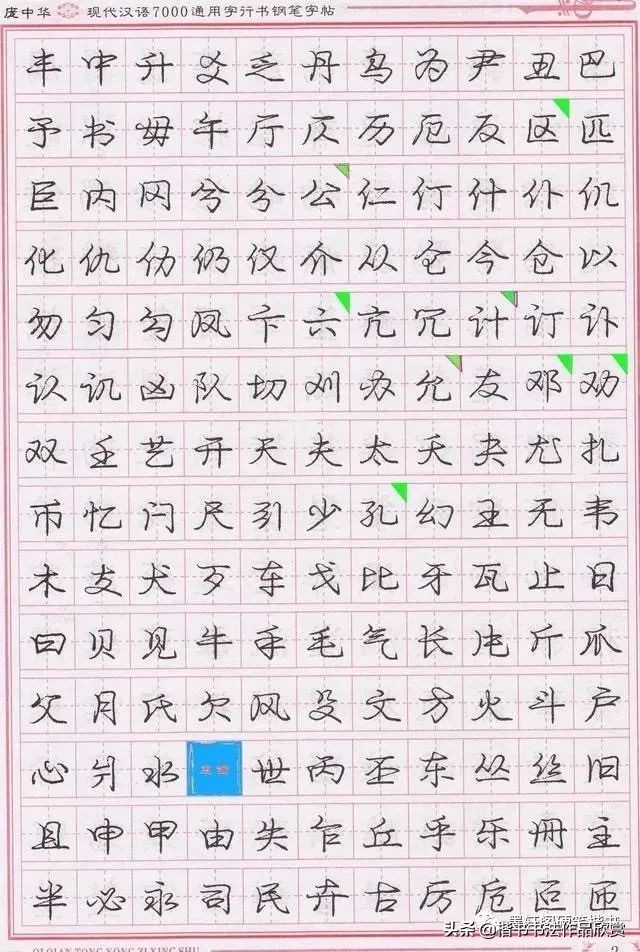 庞中华 现代汉语7000通用字行书钢笔字帖
丰中升爻乏丹鸟为尹丑巴
予书毋午厅仄历厄反区匹
巨内冈兮分公仁仃什仆仉
化仇仂仍仪介从仓今仑以
勿匀勾凤卞六亢冗计订讣
认讥凶队切刈办允友邓劝
双壬艺开天夫太夭夬尤扎
币忆闩尺引少孔幻王无韦
木支犬歹车戈比牙瓦止日
曰贝见牛手毛气长片斤爪
父月氏欠风殳文方火斗户
心爿水世丙丕东丛丝旧
且申甲由失乍丘乎乐册主
半必永司民卉古厉卮叵匝
头条@楷书书法作品欣赏